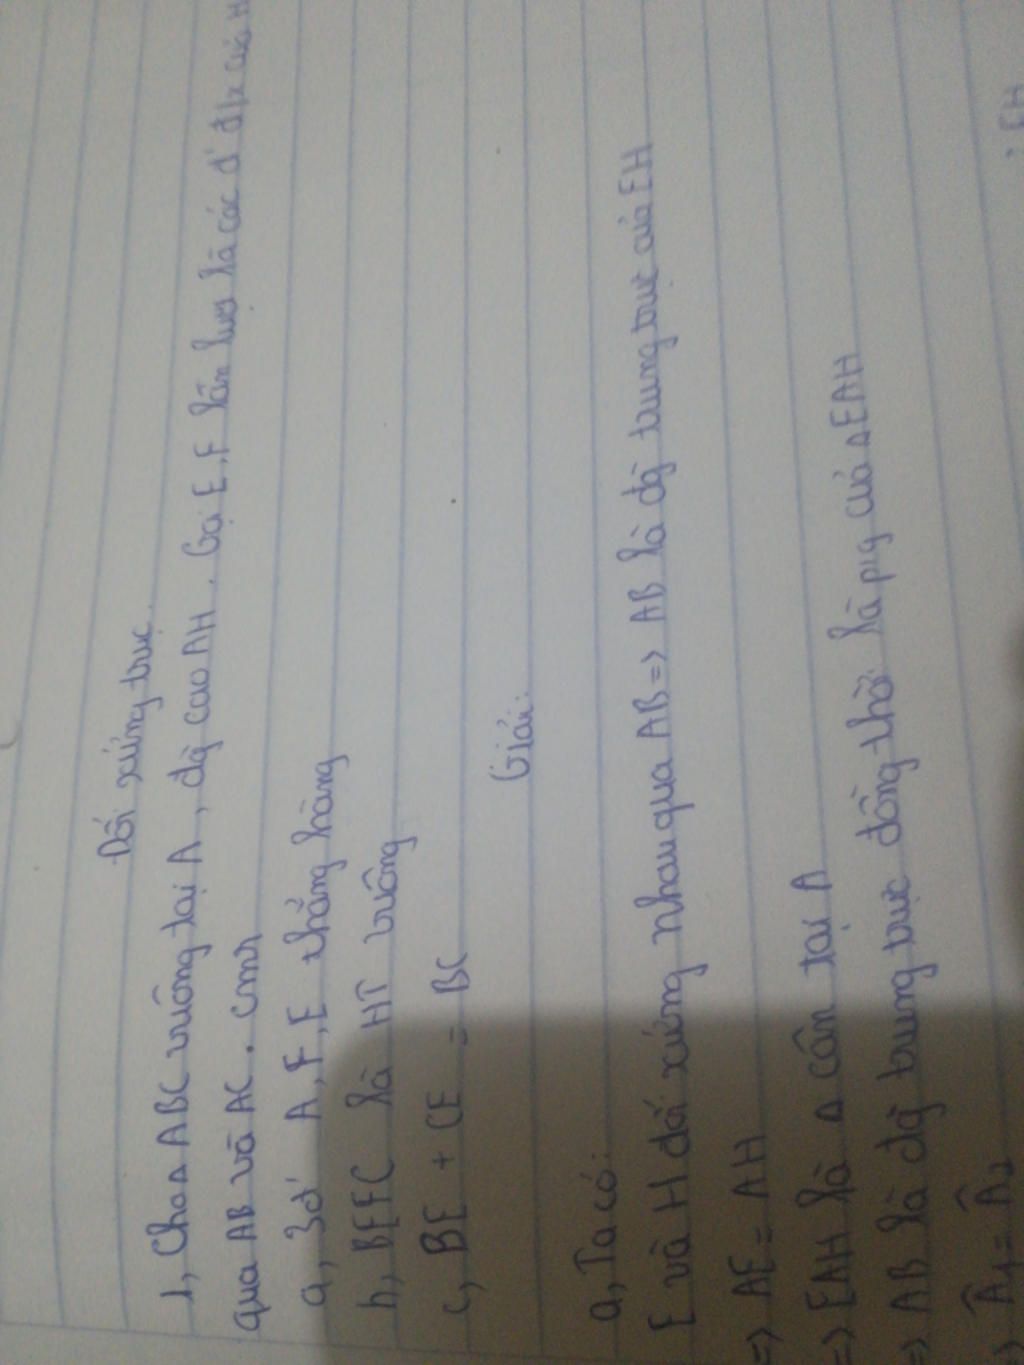 Đối xứng trục.
1, Cho Δ ABC vuông tại A, đg cao AH. Gọi E, F lần lượt là các đ' đ/x của H
qua AB và AC. cmr
a, 3đ' A, F, E thẳng hàng
b, BEFC là HT vuông
c, BE + CE = BC
Giải:
a, Ta có:
E và H đối xứng nhau qua AB => AB là đg trung trực của EH
=> AE = AH
=> EAH là Δ cân tại A
=> AB là đg trung trực đồng thời là p/g của Δ EAH
=> Â1 = Â2
: EH